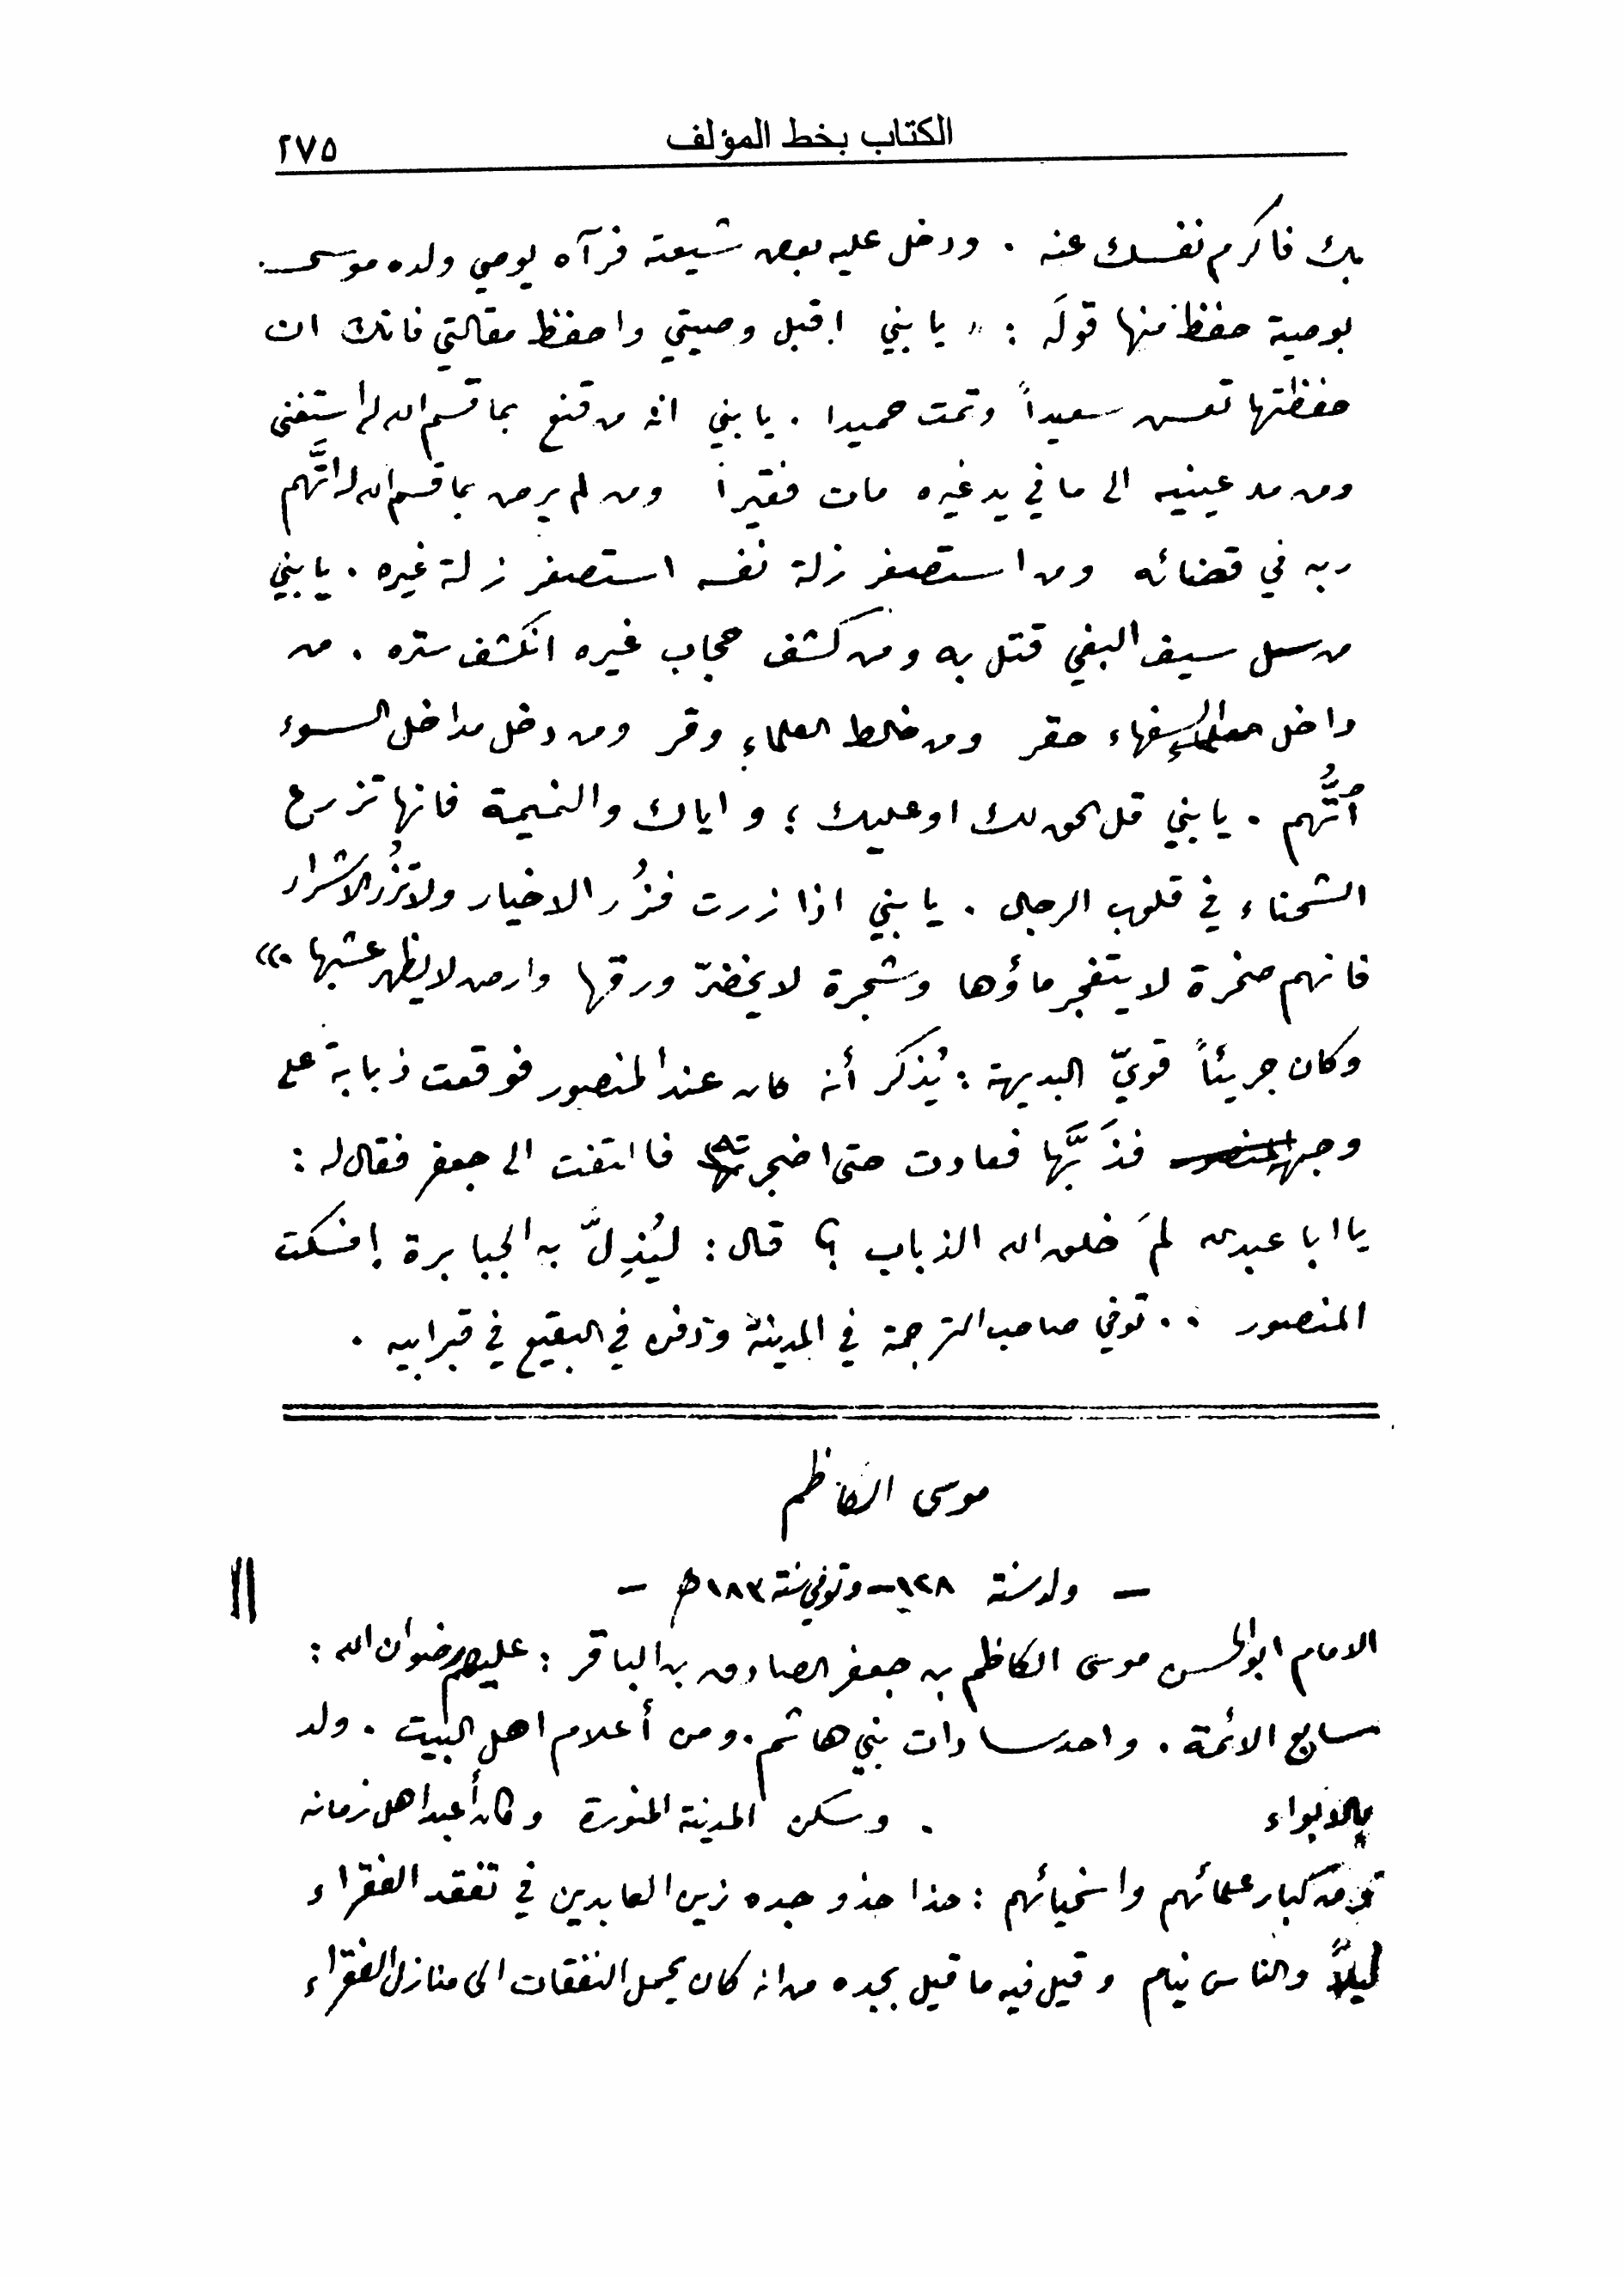 الكتاب بخط المؤلف
٢٧٥
بك فاكرم نفسك عنه . ودخل عليه بعض شيعته فرآه يوصي ولده موسى
بوصية حفظ منها قولَه : " يا بني اقبل وصيتي واحفظ مقالتي فانك ان
حفظتها تعس سعيداً وتمت حميدا . يا بني انه من قنع بما قسم الله له استغنى
ومن مد عينيه الى ما في يد غيره مات فقيراً ومن لم يرض بما قسم الله له اتَّهم
ربه في قضائه ومن استصغر زلة نفسه استصغر زلة غيره . يا بني
من سل سيف البغي قتل به ومن كشف حجاب غيره انكشف ستره . من
داخل السفهاء حقر ومن خالط العلماء وقر ومن دخل مداخل السوء
اتُّهم . يا بني قل الحق لك او عليك ؛ واياك والنميمة فانها تزرع
الشحناء في قلوب الرجال . يا بني اذا زرت فزُر الاخيار ولا تزُر الاشرار
فانهم صخرة لا يتفجر ماؤها وشجرة لا يخضرّ ورقها وارض لا يظهر عشبها »
وكان جريئاً قويّ البديهة : يُذكر أنه كان عند المنصور فوقعت ذبابة على
وجهه فذَبَّها فعادت حتى اضجرته فالتفت الى جعفر فقال له :
يا ابا عبدالله لمَ خلق الله الذباب ؟ قال : ليُذِلَّ به الجبابرة ! فسكت
المنصور .. توفي صاحب الترجمة في المدينة ودفن في البقيع في قبر ابيه .
موسى الكاظم
– ولد سنة ١٢٨ – وتوفي سنة ١٨٣ هـ –
الامام ابو الحسن موسى الكاظم بن جعفر الصادق بن الباقر : عليهم رضوان الله :
سابع الائمة . واحد سادات بني هاشم . ومن أعلام اهل البيت . ولد
بالابواء . وسكن المدينة المنورة وكان أعبد اهل زمانه
ومن كبار علمائهم واسخيائهم : حذا حذو جده زين العابدين في تفقد الفقراء
ليلاً والناس نيام وقيل فيه ما قيل بجده من انه كان يحمل النفقات الى منازل الفقراء